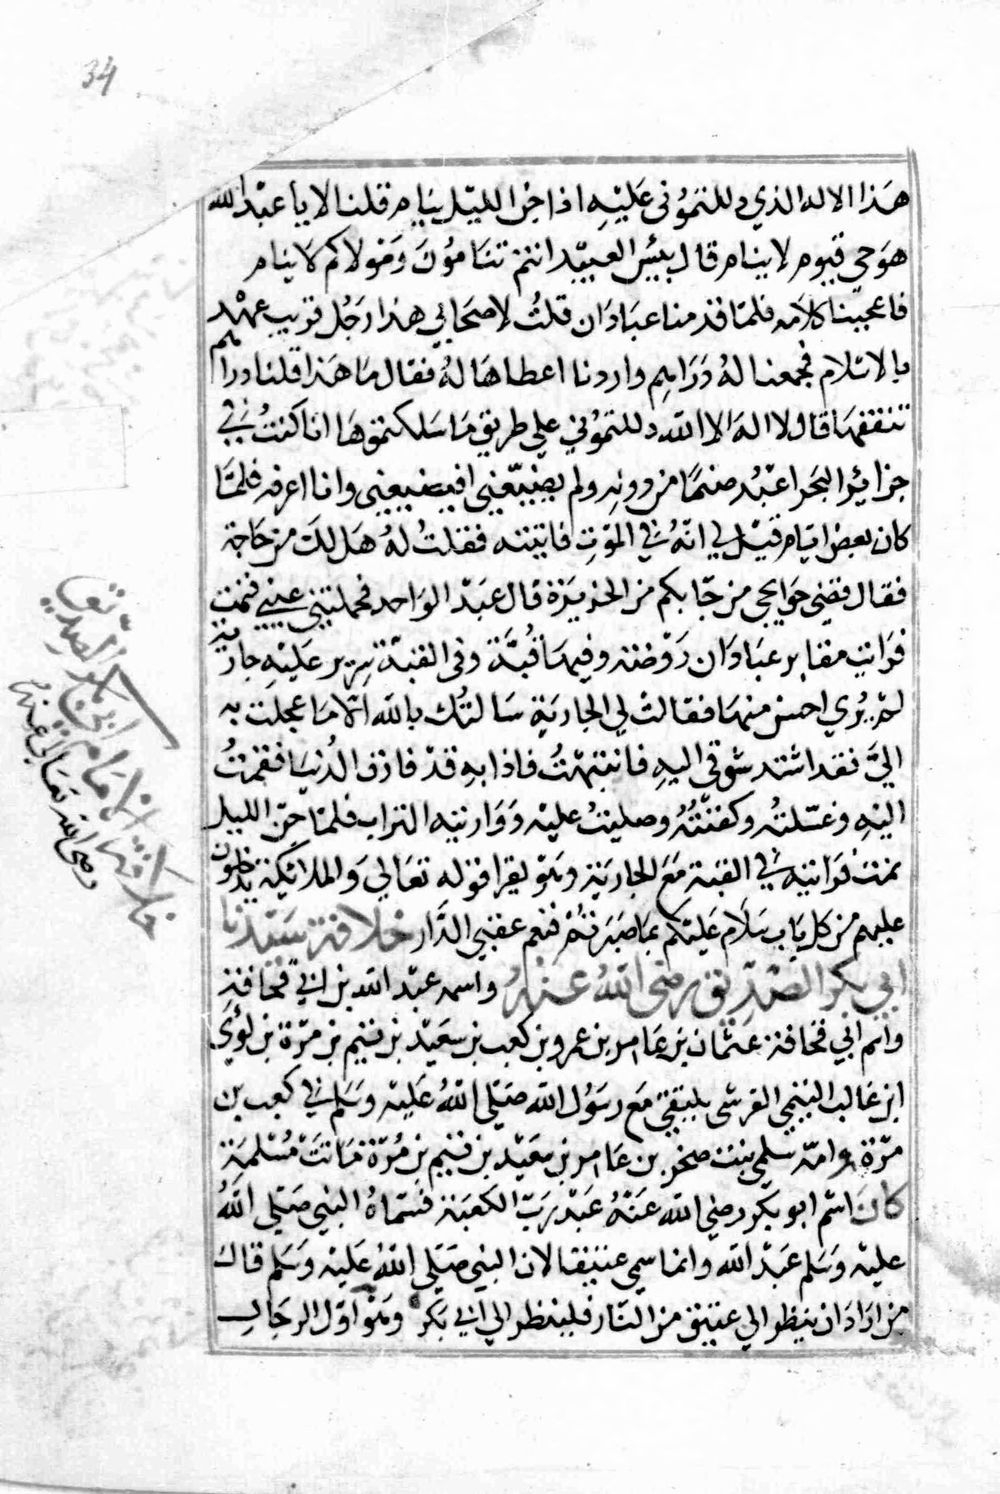 34
هَذا الاله الذي دللتموُنى عَليْهِ اذا جن الليْل ينَام قلنا لا يا عبْدالله
هوَحي قيوم لا ينام قال بيئس العبيْد انتم تنامُوُنَ وَمَولاكم لا ينام
فاعجبنا كلامه فلما قدمنا عبَادَان قلتُ لاصحَابي هذا رَجُل قريب عهْد
بالاسلام فجمعنا لهُ دَرَاهِم واردنا اعطاهَا لهُ فقال ما هَذا قلنا دراهم
تنفقهَا قال لا اله الا الله دللتموُني علي طريق مَا سَلكتموهَا انا كنتُ في
جزائر البَحر اعبُد صنمًا من دونه ولم يضيّعني افيضيعني وانا اعرفه فلمَّا
كان بعض ايام قيْل لي انهُ في المَوت فاتيته فقلتُ لهُ هَل لكَ من حَاجة
فقال قضى حوَايجى من جَا بكم من الجزيرَة قال عبَدْ الوَاحد فحملتني عيني فنمت
فرَايت مقابر عبَادَان رَوْضة وفيهَا قبَّة وفى القبَّة سرير عليْهِ جارية
لم يرى احسن منهَا فقالت لي الجارية سَالتُك بالله الا مَا عجلت به
اليَّ فقد اشتد شوقى اليهِ فانتبهْتُ فاذا بهِ قدْ فارق الدُنيَا فقمتُ
اليْهِ وغسّلتُه وكفنْتُهُ وصليتُ عليْه وَوَاريته التراب فلمَا جَن الليل
نمت فرَايته في القبة مَعَ الجاريَة وهوَ يقرا قوله تعَالي وَالملائكة يدخلون
عليهم من كل باب سَلَام عَليْكم بمَا صَبَرتُم فنعم عقبي الدَّار خلافة سَيّدنا
ابي بكر الصّدّيق رضى اللهُ عنْهُ واسمه عبْد الله بن ابي قحافة
واسم ابي قحافة عثمان بن عَامر بن عمرو بن كعب بن سعَيْد بن تيْم بن مرّة بن لؤي
ابن غالب التيْمي القرشى يلتقي مَع رسَوُل الله صَلي اللهُ عَليْه وَسَلم في كعب بن
مرّة وامّه سلمي بنت صخر بن عَامر بن سعَيْد بن تيْم بن مُرّة مَاتتَ مُسْلمَة
كانَ اسْم ابو بكر رضي الله عنَهُ عَبْد رَبّ الكعبَة فسَمّاهُ النبي صَلي اللهُ
عليْه وَسَلم عَبْد الله وانما سمي عتيقا لان النبي صَلي اللهُ عَليْه وَسَلم قال
من ارَادَ ان ينظر الي عتيق من النّار فلينظر الي ابي بَكر وَهوَ اوّل الرجَال
خلافة الامام ابي بكر الصديق
رضى الله تعَالى عنهُ